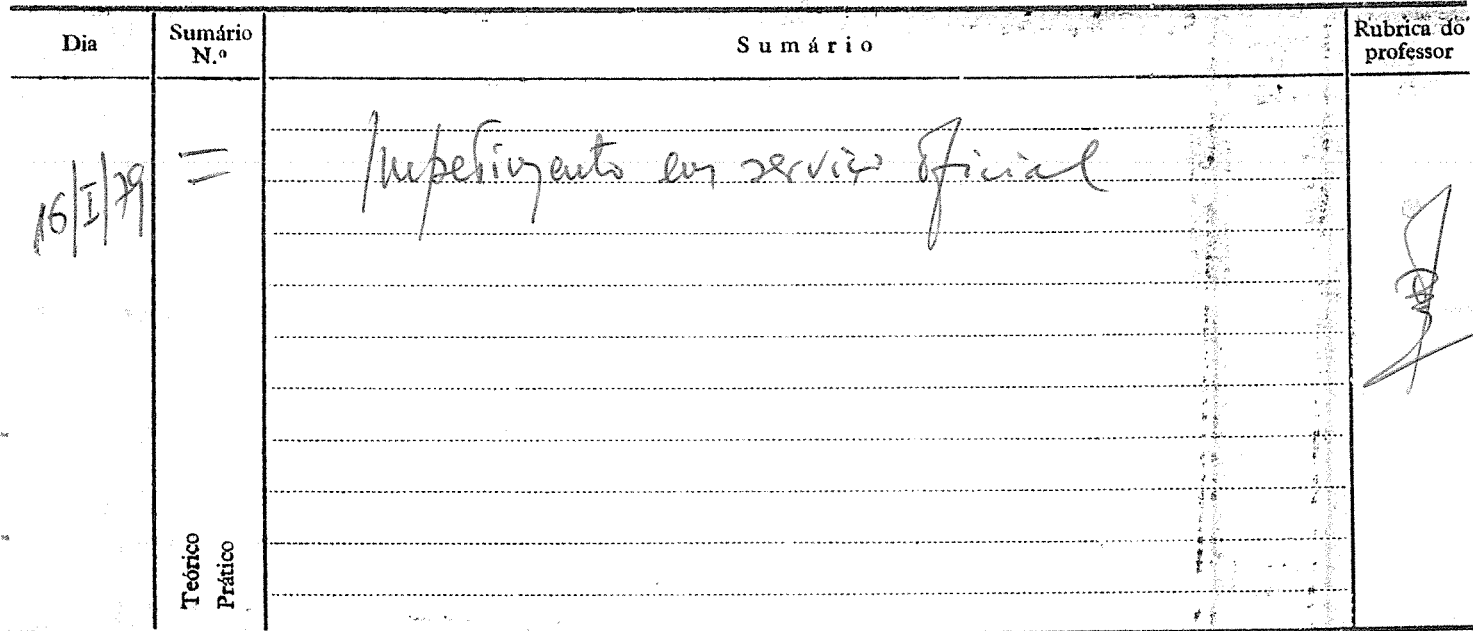 Dia
Sumário N.º
Sumário
Rubrica do professor
16/I/79
=
Impedimento em serviço oficial
Teórico
Prático